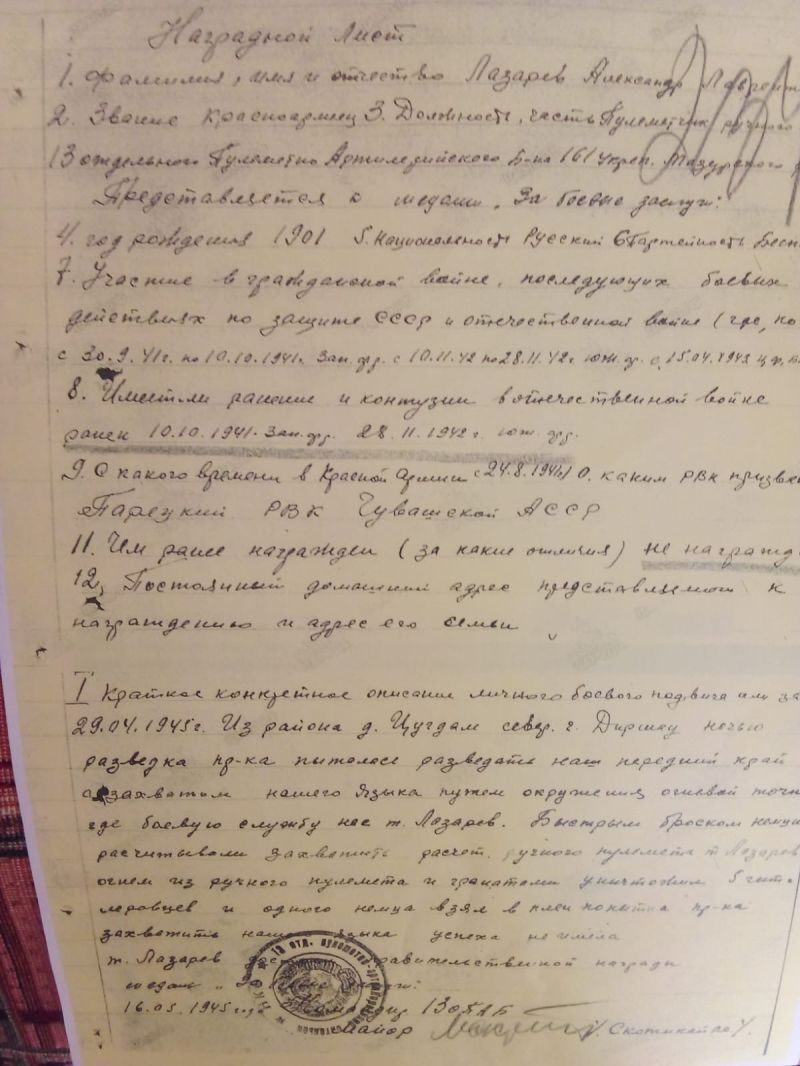 Наградной Лист
1. Фамилия, имя и отчество Лазарев Александр Лаврент
2. Звание Красноармеец 3. Должность, часть Пулеметчик ручного
13 отдельного Пулеметно Артилерийского Б-на 161 Укреп. Мазурского
Представляется к медали „За боевые заслуги"
4. год рождения 1901 5. Национальность Русский 6 Партейность Бесп
7. Участие в гражданской войне, последующих боевых
действиях по защите СССР и отечественной войне (где, ко
с 30.9.41г. по 10.10.1941. Зап. фр. с 10.11.42 по 28.11.42г Юж. фр. с 15.04.1943
8. Имеет ли ранение и контузии в отечественной войне
ранен 10.10.1941. Зап. фр. 28.11.1942 г. Юж. фр.
9. С какого времени в Красной Армии с 24.8.1941г 10. каким РВК призва
Порецкий РВК Чувашской АССР
11. Чем ранее награжден (за какие отличия) не награжд
12. Постоянный домашний адрес представляемого к
награждению и адрес его семьи
I Краткое конкретное описание личного боевого подвига или за
29.04.1945г. Из района д. Цугдам север. г. Диршау ночью
разведка пр-ка пыталась разведать наш передний край
захватим нашего Языка путем окружения огневой точк
где боевую службу нес т. Лазарев. Быстрым броском немцы
расчитывали захватить расчет. ручного пулемета т Лазарев
огнем из ручного пулемета и гранатами уничтожил 5 гит-
леровцев и одного немца взял в плен попытка пр-ка
захватить наше языка успеха не имела
т. Лазарев правительственной награды
медаль „За
16.05.1945 года 13 ОПАБ
Майор /Скотикайло/